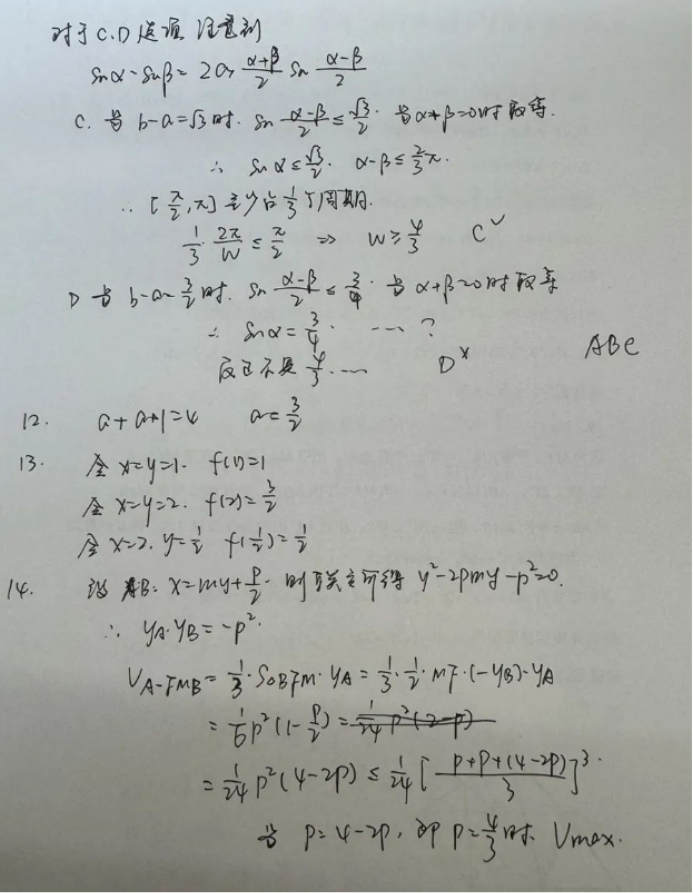 对于C.D选项 注意到
sinα-sinβ=2cos (α+β)/2 sin (α-β)/2
C. 当 b-a=√3时. sin (α-β)/2 ≤ √3/2. 当α+β=0时取等.
∴ sinα≤√3/2. α-β≤2/3π.
∴ [π/2,π]至少占1/3个周期.
1/3·2π/W ≤ π/2 ⇒ W≥4/3 C✓
D 当 b-a=3/2时. sin (α-β)/2 ≤ 3/4. 当α+β=0时取等
∴ sinα=3/4. ……?
反正不是4/3. …… D× ABC
12. a+a+1=4 a=3/2
13. 令x=y=1. f(1)=1
令x=y=2. f(2)=3/2
令x=2. y=1/2 f(1/2)=1/2
14. 设 AB: x=my+P/2. 则联立可得 y²-2pmy-p²=0.
∴ yA·yB=-p².
V_A-FMB=1/3·S_OBFM·yA=1/3·1/2·MF·(-yB)·yA
=1/6p²(1-P/2)=1/24 p²(2-p)
=1/24 p²(4-2p) ≤ 1/24 [(P+P+(4-2P))/3]³.
当 P=4-2P, 即 P=4/3 时. Vmax.